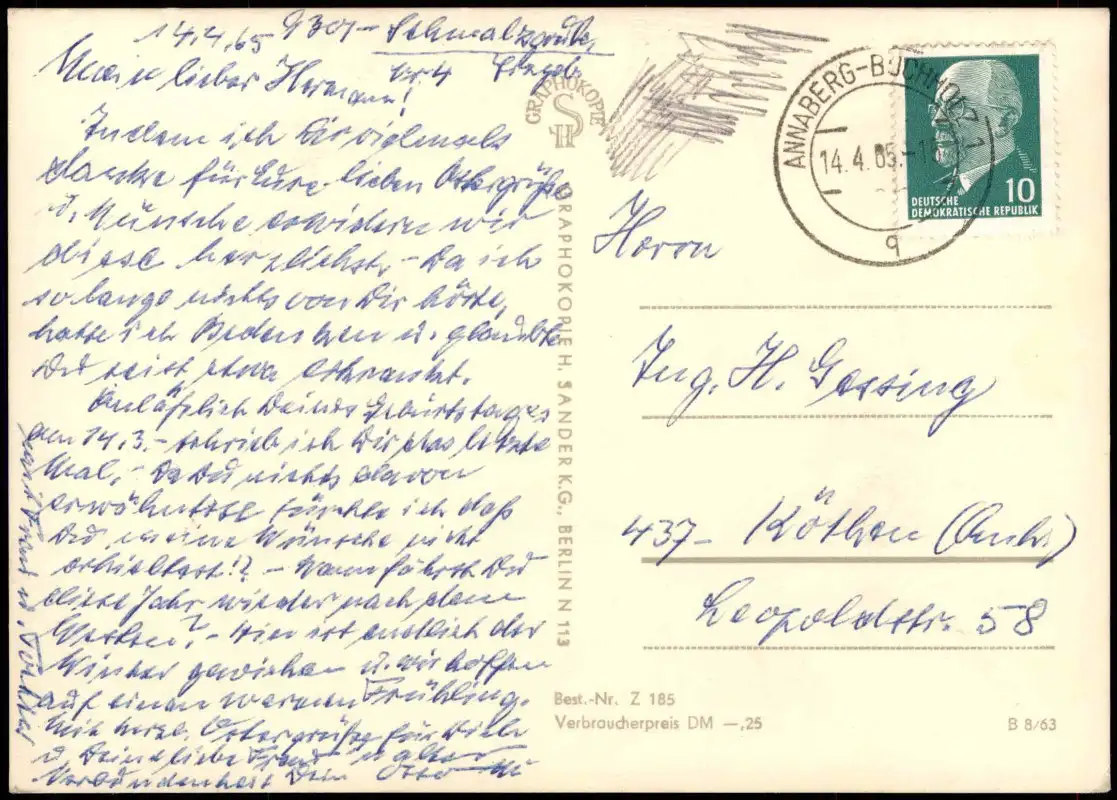 14.4.65 9301- Schmalzgrube
Mein lieber Hermann! Nr 4
Indem ich Dir vielmals
danke für Eure lieben Ostergrüße
u. Wünsche erwidern wir
diese herzlichst, - Da ich
so lange nichts von Dir hörte,
hatte ich Bedenken u. glaubte
Du seist etwa erkrankt.
Anläßlich Deines Geburtstages
am 14.3. - schrieb ich Dir das letzte
Mal, - Da Du nichts davon
erwähntest fürchte ich daß
Du meine Wünsche nicht
erhieltest!? - Wann fährst Du
diese Jahr wieder nach dem
Westen? - Hier ist endlich der
Winter gewichen u. wir hoffen
auf einen warmen Frühling.
Mit herzl. Ostergrüße für Dich
u Deine liebe Frau in alter
Verbundenheit Dein Otto
Frau u. Tochter
GRAPHOKOPIE
H S
GRAPHOKOPIE H. SANDER K.G., BERLIN N 113
ANNABERG-BUCHHOLZ 1
14.4.65.-18
q
10
DEUTSCHE
DEMOKRATISCHE REPUBLIK
Herrn
Ing. H. Gessing
437- Köthen (Anh.)
Leopoldstr. 58
Best.-Nr. Z 185
Verbraucherpreis DM —,25
B 8/63